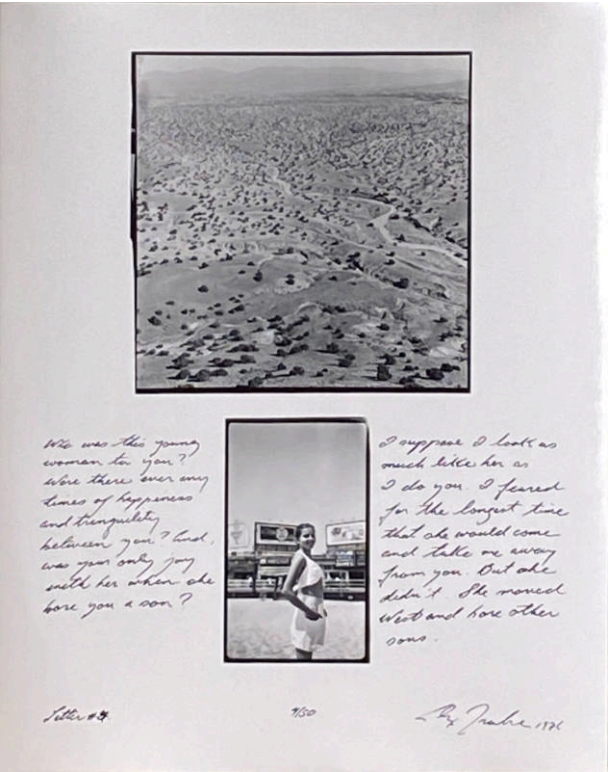 Who was this young
woman to you?
Were there ever any
times of happiness
and tranquility
between you? And,
was your only joy
with her when she
bore you a son?
I suppose I look as
much like her as
I do you. I feared
for the longest time
that she would come
and take me away
from you. But she
didn't. She moved
West and bore other
sons.
Letter #
/50